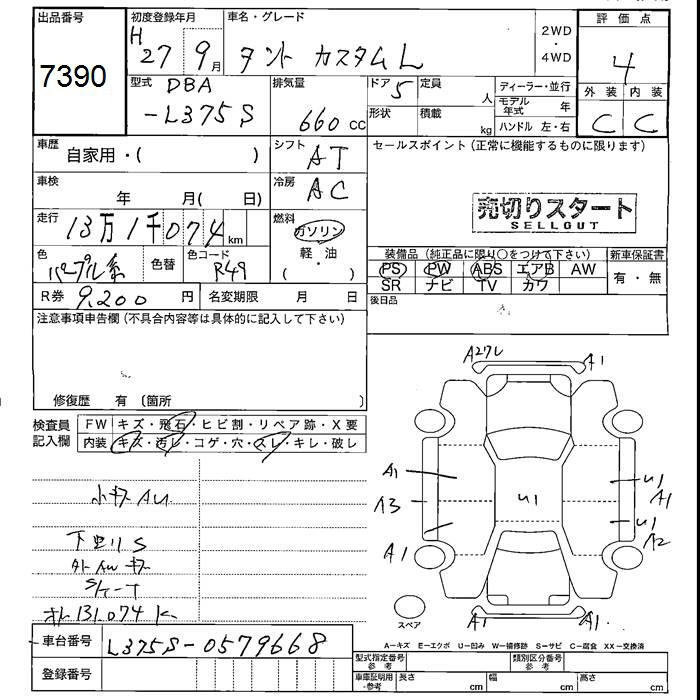 出品番号
7390
初度登録年月
H 27年 9月
車名・グレード
タント カスタム L
2WD
・
4WD
評価点
4
外装 内装
C C
型式
DBA
-L375S
排気量
660 cc
ドア 5
形状
定員 人
積載 kg
ディーラー・並行
モデル年式 年
ハンドル 左・右
車歴
自家用・( )
シフト
AT
セールスポイント (正常に機能するものに限ります)
車検
年 月( 日)
冷房
AC
売切りスタート
SELLOUT
走行
13万1千074 km
燃料
ガソリン
軽・油
( )
色
パープル系
色替
色コード
R49
装備品 (純正品に限り○をつけて下さい)
新車保証書
PS PW ABS エアB AW
SR ナビ TV カワ
有・無
R券 9,200 円
名変期限 月 日
後日品
注意事項申告欄 (不具合内容等は具体的に記入して下さい)
修復歴 有 (箇所 )
検査員
記入欄
FW キズ・飛石・ヒビ割・リペア跡・X要
内装 キズ・汚レ・コゲ・穴・スレ・キレ・破レ
小キズ AU
下廻り S
外AWキズ
シート
オド 131,074 K
車台番号 L375S-0579668
登録番号
A27L
A1
A1
A3
A1
U1
U1
A1
U1
A2
スペア
A1
A1.
A-キズ E-エクボ U-凹み W-補修跡 S-サビ C-腐食 XX-交換済
型式指定番号
参考
類別区分番号
参考
車庫証明用
・参考
長さ cm
幅 cm
高さ cm